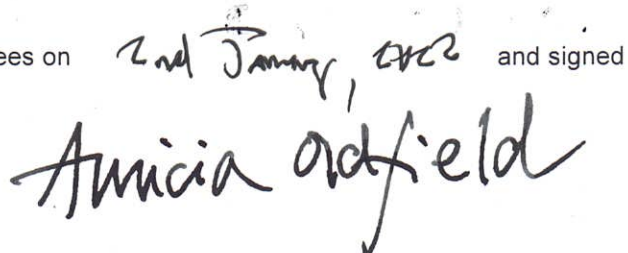 ees on 2nd January, 2022 and signed
Amicia Oldfield